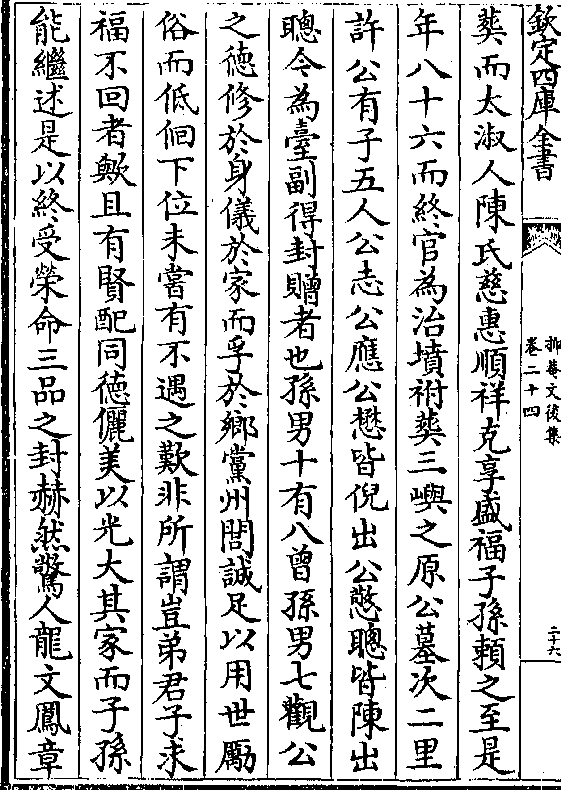 欽定四庫全書
抑菴文後集
卷二十四
二十六
葬而太淑人陳氏慈惠順祥克享盛福子孫賴之至是
年八十六而終官為治墳祔葬三嶼之原公墓次二里
許公有子五人公志公應公懋皆倪出公憋聰皆陳出
聰今為臺副得封贈者也孫男十有八曾孫男七觀公
之德修於身儀於家而孚於鄉黨州閭誠足以用世厲
俗而低佪下位未嘗有不遇之歎非所謂豈弟君子求
福不回者歟且有賢配同德儷美以光大其家而子孫
能繼述是以終受榮命三品之封赫然驚人龍文鳳章